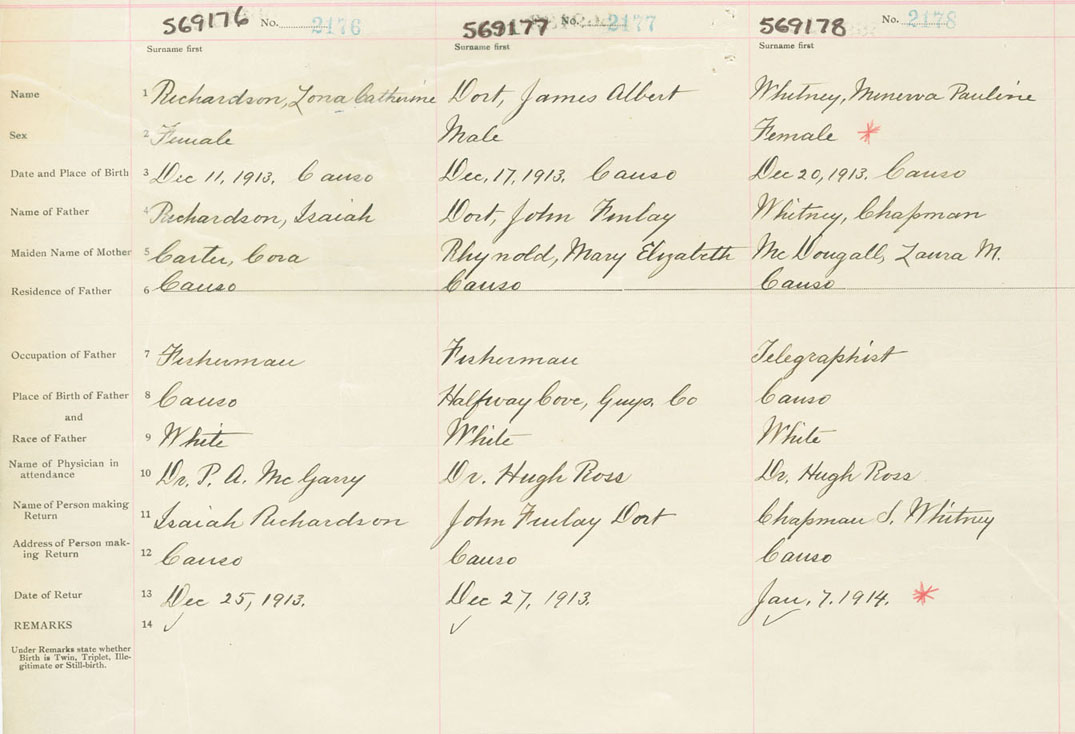 569176 No. 2176 569177 No. 2177 569178 No. 2178
Surname first Surname first Surname first
Name 1 Richardson, Zona Catherine Dort, James Albert Whitney, Minerva Pauline
Sex 2 Female Male Female *
Date and Place of Birth 3 Dec 11, 1913. Canso Dec, 17, 1913. Canso Dec 20, 1913. Canso
Name of Father 4 Richardson, Isaiah Dort, John Finlay Whitney, Chapman
Maiden Name of Mother 5 Carter, Cora Rhynold, Mary Elizabeth McDougall, Laura M.
Residence of Father 6 Canso Canso Canso
Occupation of Father 7 Fisherman Fisherman Telegraphist
Place of Birth of Father 8 Canso Halfway Cove, Guys. Co Canso
and
Race of Father 9 White White White
Name of Physician in
attendance 10 Dr. P. A. McGarry Dr. Hugh Ross Dr. Hugh Ross
Name of Person making
Return 11 Isaiah Richardson John Finlay Dort Chapman S. Whitney
Address of Person mak-
ing Return 12 Canso Canso Canso
Date of Retur 13 Dec 25, 1913. Dec 27, 1913. Jan, 7. 1914. *
REMARKS 14 ✓ ✓ ✓
Under Remarks state whether
Birth is Twin, Triplet, Ille-
gitimate or Still-birth.